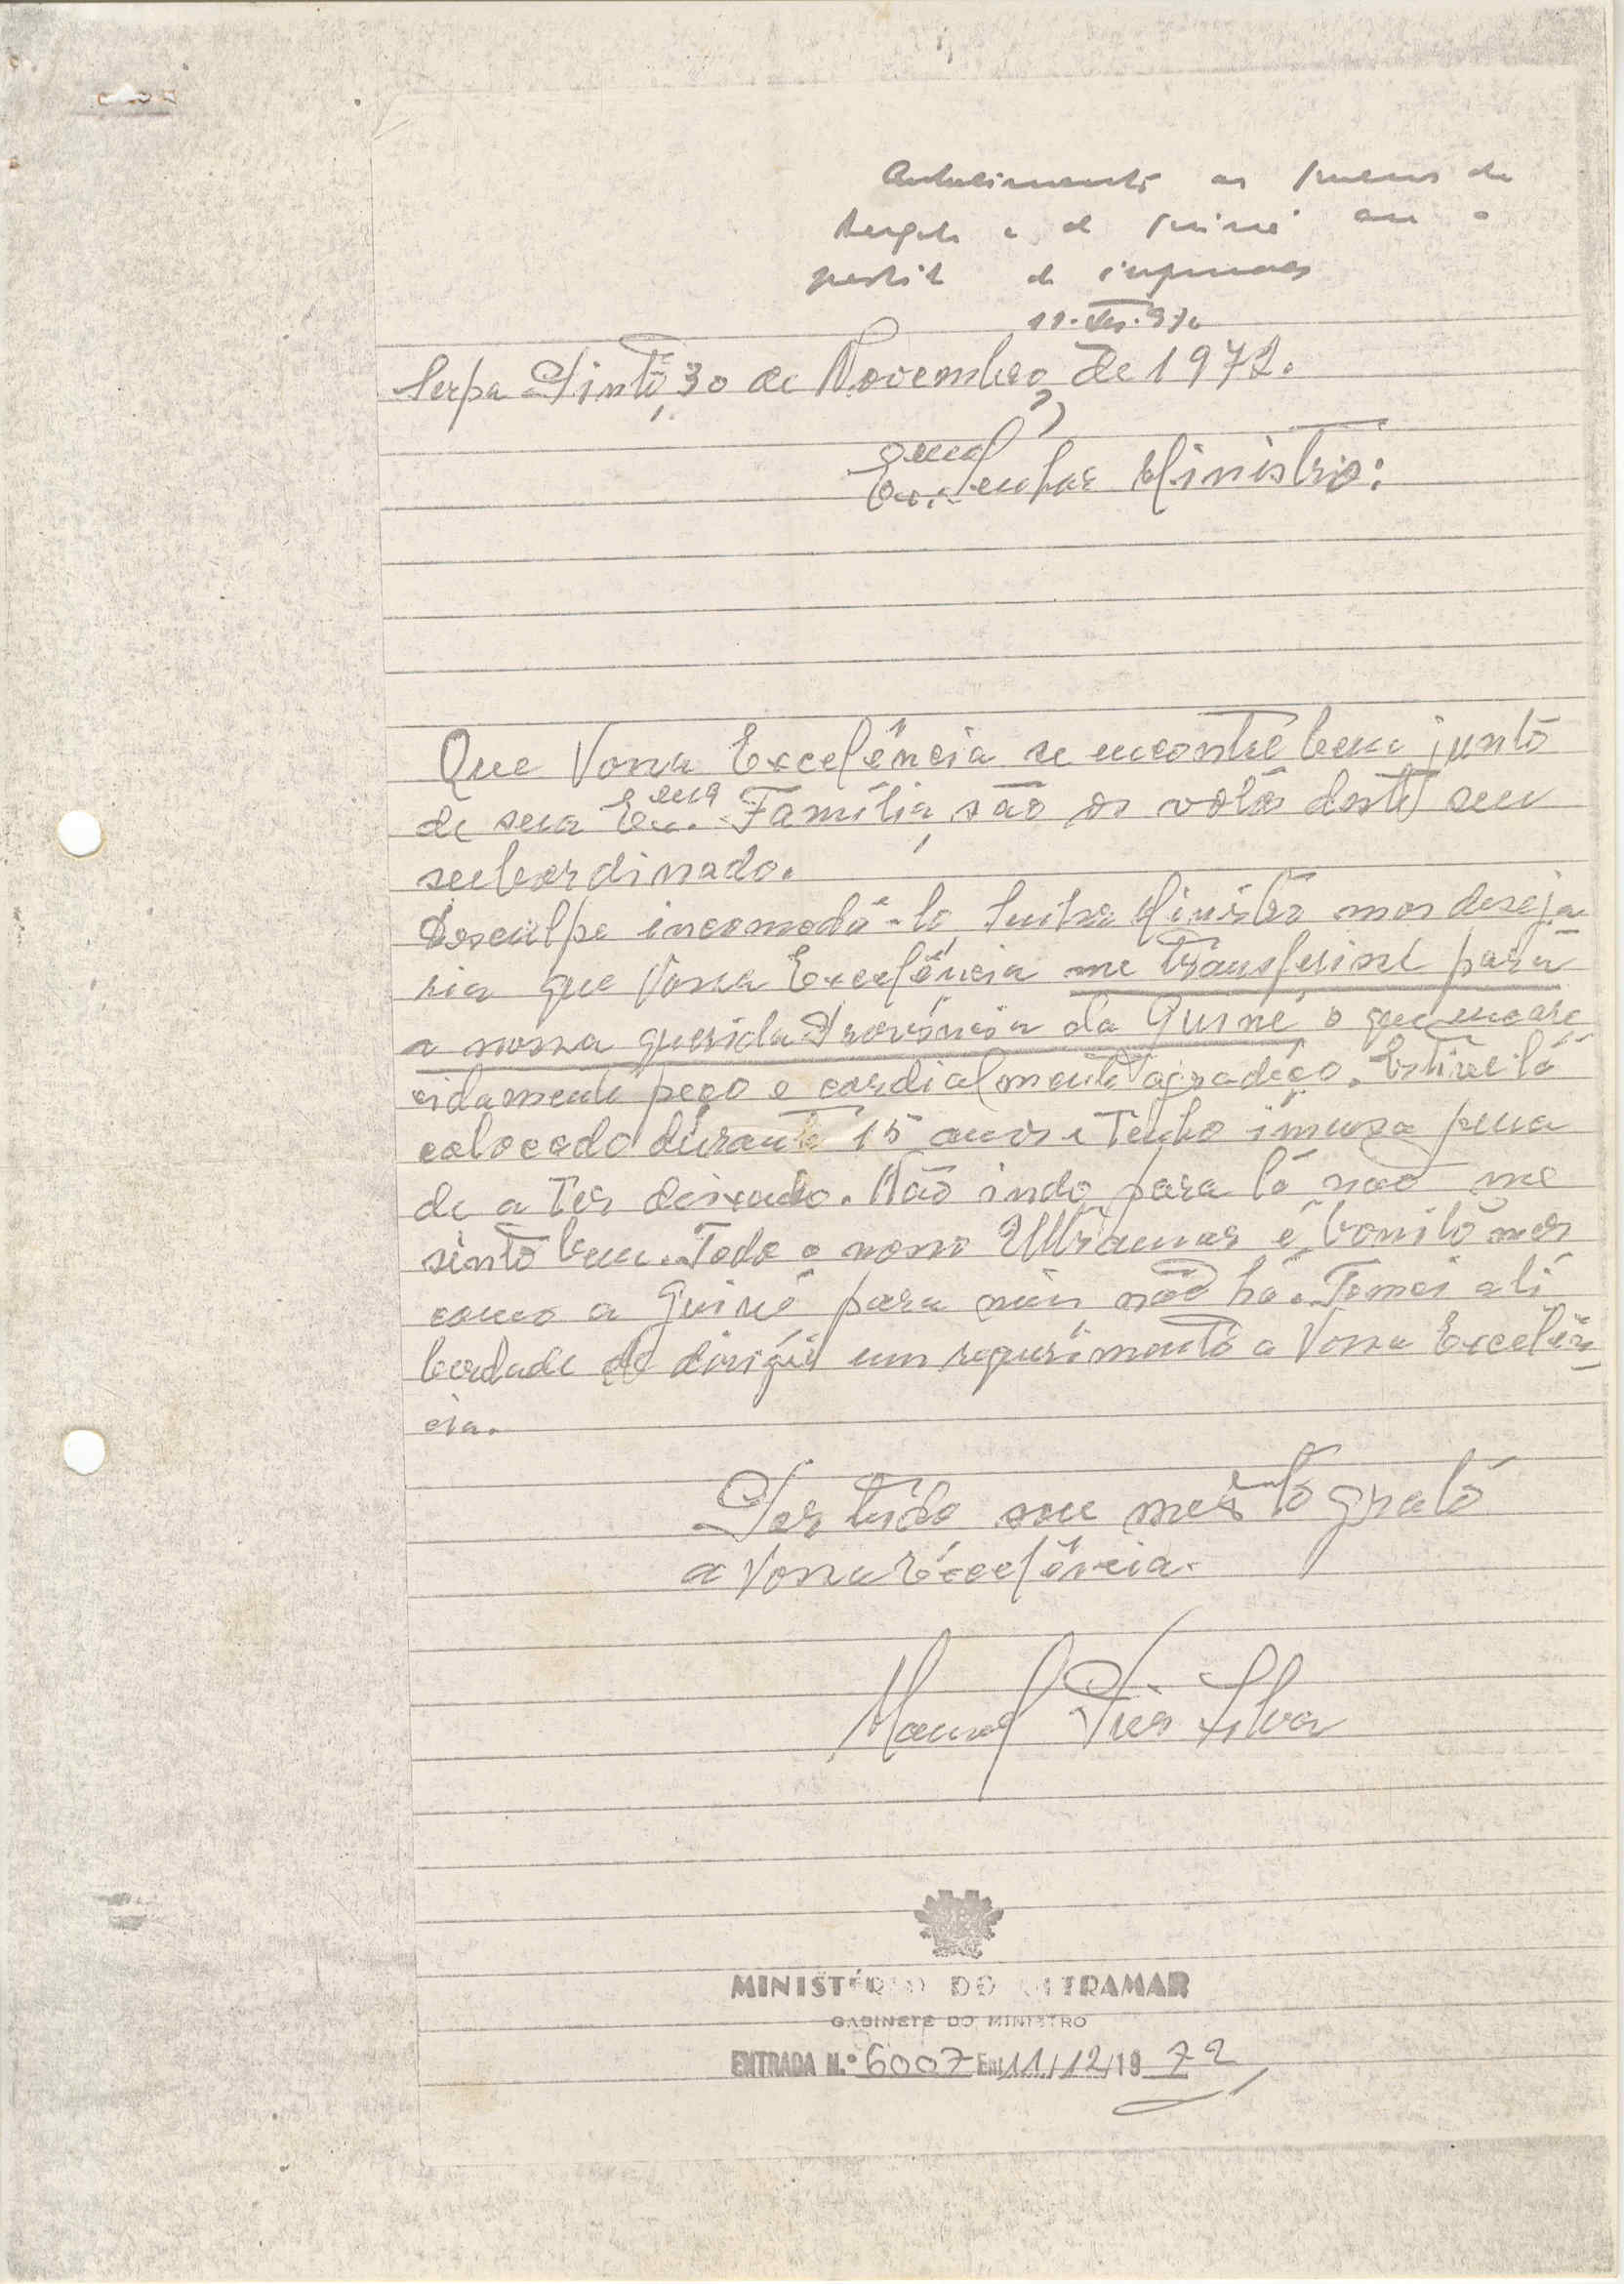 de
a o
de
11.
Serpa Pinto, 30 de Novembro, de 1972.
Exmº Senhor Ministro:
Que Vossa Excelência se encontre bem junto
de sua Exma. Família, são os votos deste seu
subordinado.
Desculpe incomodá-lo, Senhor Ministro mas deseja
ria que Vossa Excelência me transferisse para
a nossa querida Província da Guiné o que encare
cidamente peço e cordialmente agradeço. Estive lá
colocado durante 15 anos e tenho imensa pena
de a ter deixado. Não indo para lá não me
sinto bem. Todo o nosso Ultramar é bonito mas
como a Guiné para mim não há. Tomei a li
berdade de dirigir um requerimento a Vossa Excelên
cia.
Por tudo sou muito grato
a Vossa Excelência.
Manuel Silva
MINISTÉRIO DO ULTRAMAR
GABINETE DO MINISTRO
ENTRADA N.º 6007 Em 11/12/19 72